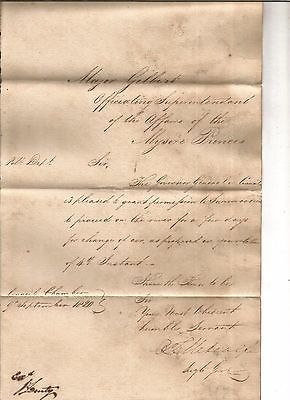 Major Gilbert
Officiating Superintendant
of the Affairs of the
Mysore Princes
Pol. Dept.
Sir,
The Governor General in Council
is pleased to grant permission to
to proceed on the river for a few days
for change of air, as proposed in your letter
of 4th Instant
I have the honor to be
Sir
Your Most Obedient
Humble Servant
Council Chamber
9th September